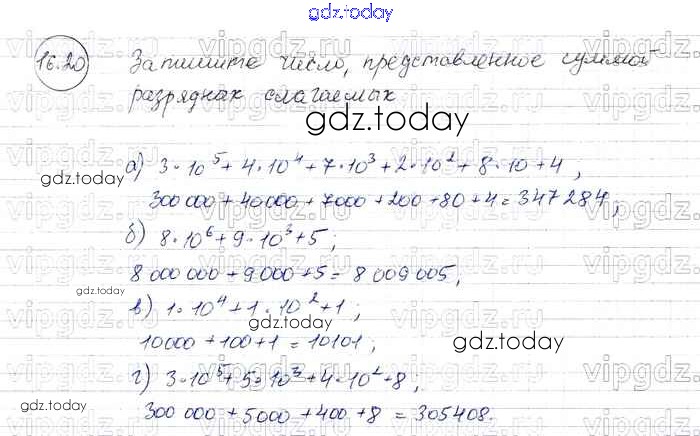 gdz.today
16.20 Запишите число, представленное суммой
разрядных слагаемых
gdz.today
а) 3·10⁵+4·10⁴+7·10³+2·10²+8·10+4,
gdz.today
300 000+40000+7000+200+80+4=347 284,
б) 8·10⁶+9·10³+5;
8 000 000+9000+5=8 009 005,
в) 1·10⁴+1·10²+1;
gdz.today
10000+100+1=10101;
gdz.today
г) 3·10⁵+5·10³+4·10²+8;
gdz.today
300 000+5000+400+8=305408.
vipgdz.ru